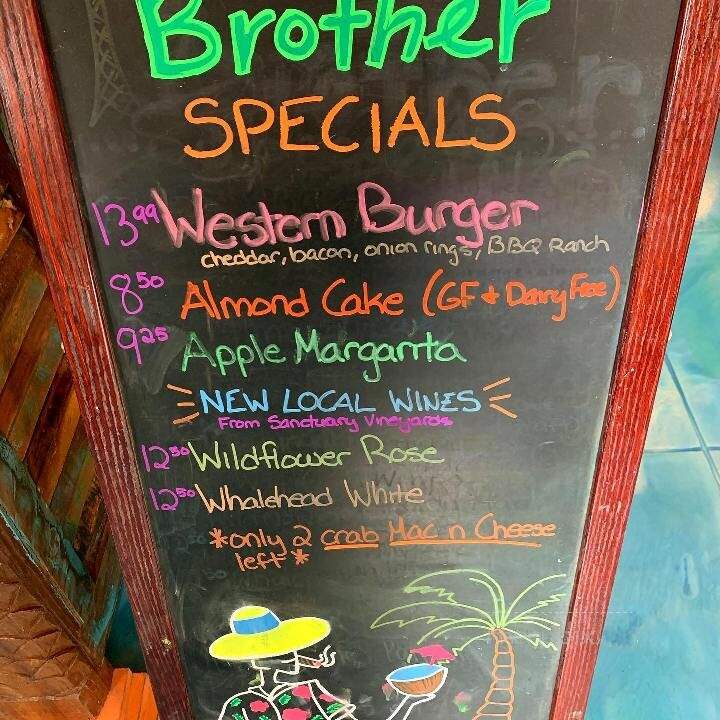 Brother
SPECIALS
13.99 Western Burger
cheddar, bacon, onion rings, BBQ Ranch
8.50 Almond Cake (GF & Dairy Free)
9.25 Apple Margarita
NEW LOCAL WINES
From Sanctuary Vineyards
12.50 Wildflower Rose
12.50 Whalehead White
*only 2 crab Mac n Cheese
left *